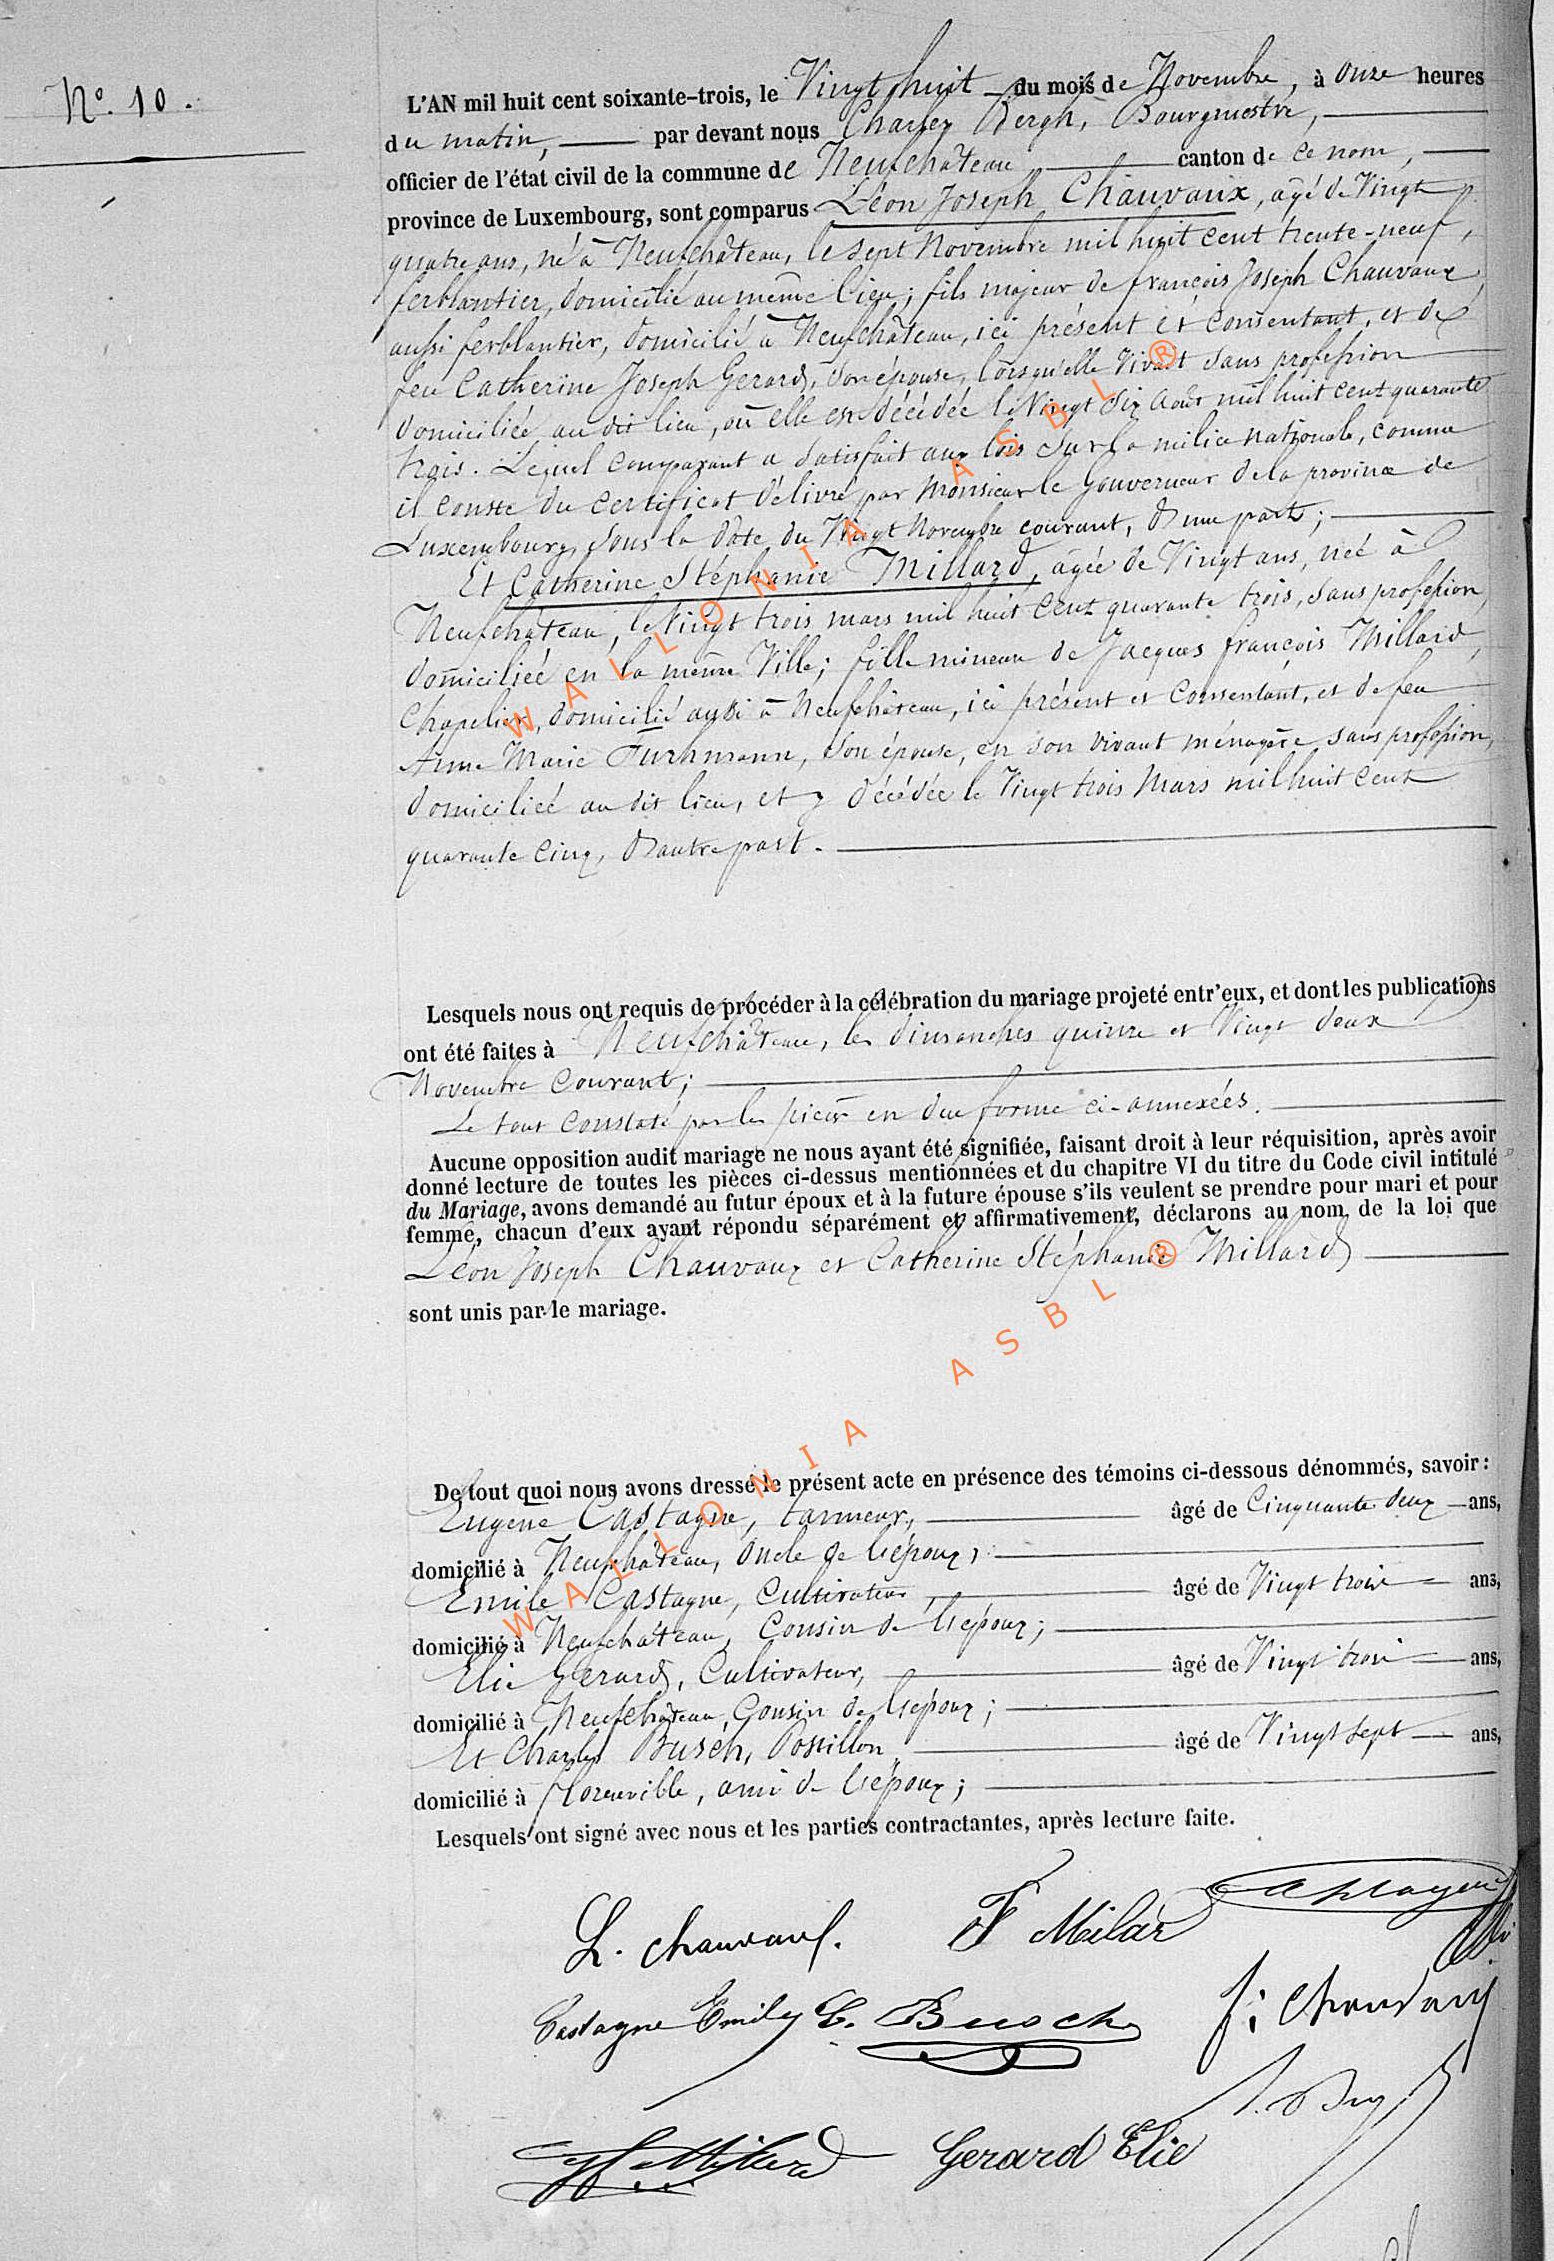 N.º 10.
L'AN mil huit cent soixante-trois, le Vingt huit du mois de Novembre, à onze heures
du matin, par devant nous Charles Bergh, Bourgmestre,
officier de l'état civil de la commune de Neufchâteau canton de ce nom,
province de Luxembourg, sont comparus Léon Joseph Chauvaux, âgé de Vingt
quatre ans, né à Neufchâteau, le sept Novembre mil huit cent trente-neuf,
ferblantier, domicilié au même lieu; fils majeur de françois Joseph Chauvaux,
aussi ferblantier, domicilié à Neufchâteau, ici présent et consentant, et de
feu Catherine Joseph Gerard, son épouse, lorsqu'elle Vivait sans profession
domiciliée au dit lieu, où elle est décédée le Vingt six Août mil huit cent quarante
trois. Lequel comparant a satisfait aux lois sur la milice nationale, comme
il conste du certificat délivré par Monsieur le Gouverneur de la province de
Luxembourg, sous la date du Vingt Novembre courant, d'une part;
Et Catherine Stéphanie Millard, âgée de Vingt ans, née à
Neufchâteau, le Vingt trois mars mil huit cent quarante trois, sans profession,
domiciliée en la même Ville; fille mineure de Jacques françois Millard,
Chapelier, domicilié aussi à Neufchâteau, ici présent et consentant, et de feu
Anne Marie Furhmann, son épouse, en son vivant ménagère sans profession,
domiciliée au dit lieu, et y décédée le Vingt trois Mars mil huit cent
quarante cinq, d'autre part.
Lesquels nous ont requis de procéder à la célébration du mariage projeté entr'eux, et dont les publications
ont été faites à Neufchâteau, les dimanches quinze et Vingt deux
Novembre courant;
Le tout constaté par les pièces en due forme ci-annexées.
Aucune opposition audit mariage ne nous ayant été signifiée, faisant droit à leur réquisition, après avoir
donné lecture de toutes les pièces ci-dessus mentionnées et du chapitre VI du titre du Code civil intitulé
du Mariage, avons demandé au futur époux et à la future épouse s'ils veulent se prendre pour mari et pour
femme, chacun d'eux ayant répondu séparément et affirmativement, déclarons au nom de la loi que
Léon Joseph Chauvaux et Catherine Stéphanie Millard
sont unis par le mariage.
De tout quoi nous avons dressé le présent acte en présence des témoins ci-dessous dénommés, savoir :
Eugène Castagne, tanneur, âgé de Cinquante deux ans,
domicilié à Neufchâteau, oncle de l'époux;
Emile Castagne, Cultivateur, âgé de Vingt trois ans,
domicilié à Neufchâteau, Cousin de l'époux;
Elie Gerard, Cultivateur, âgé de Vingt trois ans,
domicilié à Neufchâteau, Cousin de l'époux;
Et Charles Busch, Postillon, âgé de Vingt sept ans,
domicilié à Florenville, ami de l'époux;
Lesquels ont signé avec nous et les parties contractantes, après lecture faite.
L. Chauvaux. F Milar
Castagne Emile C. Busch
J: Chauvaux
Millard Gerard Elie
WALLONIA ASBL ®
WALLONIA ASBL ®